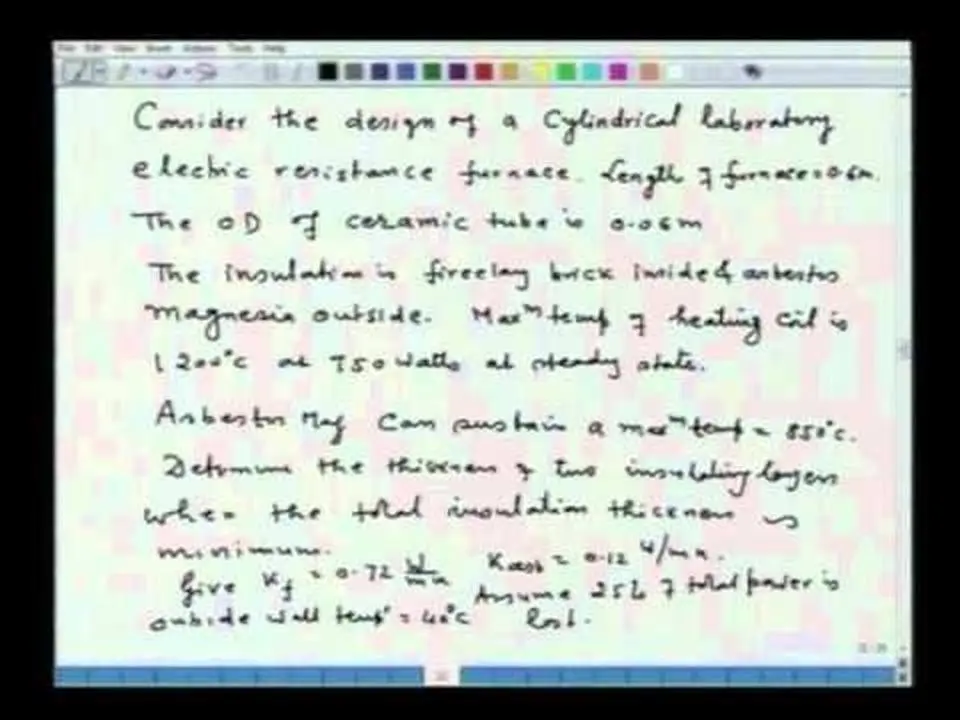 Consider the design of a Cylindrical laboratory
electric resistance furnace. Length of furnace = 0.6m.
The OD of ceramic tube is 0.06m
The insulation is fireclay brick inside & asbestos
magnesia outside. Maxm temp of heating coil is
1200°C at 750 watts at steady state.
Asbestos Mag can sustain a maxm temp = 850°C.
Determine the thickness of two insulating layers
when the total insulation thickness is
minimum.
Give Kf = 0.72 W/mK Kasb = 0.12 W/mK.
Assume 25% of total power is
outside wall temp = 40°C lost.